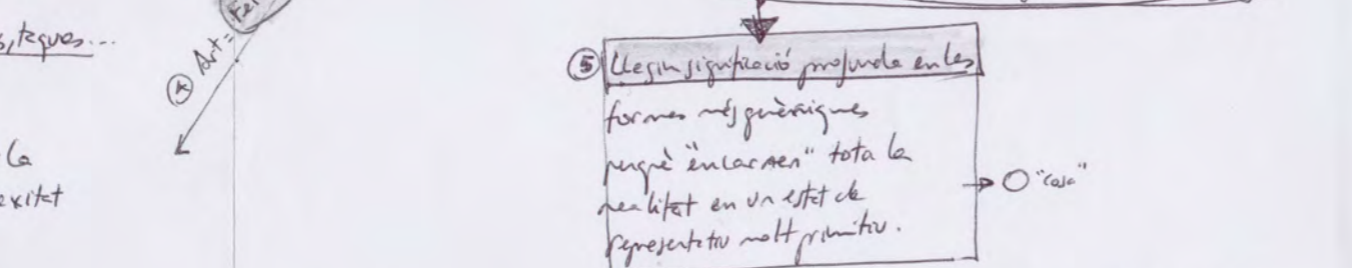 Art =
la
exitat
⑤ Llegim significació profunda en les
formes més genèriques
perquè "encarnen" tota la
realitat en un estat de
representatiu molt primitiu.
"casa"